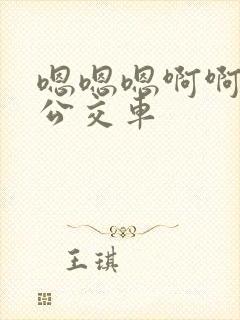 嗯嗯嗯啊啊
公交车
王琪